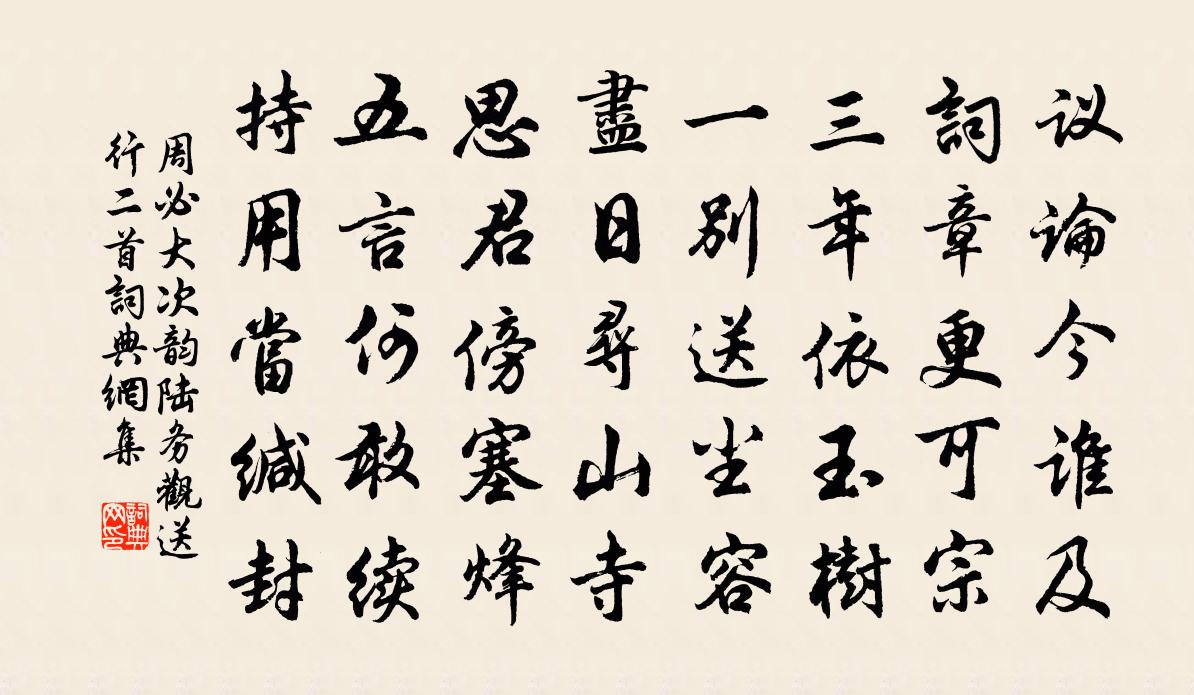 议論今谁及
詞章更可宗
三年依玉樹
一别送尘容
盡日尋山寺
思君傍塞烽
五言何敢续
持用當缄封
周必大次韵陆务觀送
行二首詞典網集
詞典
网印